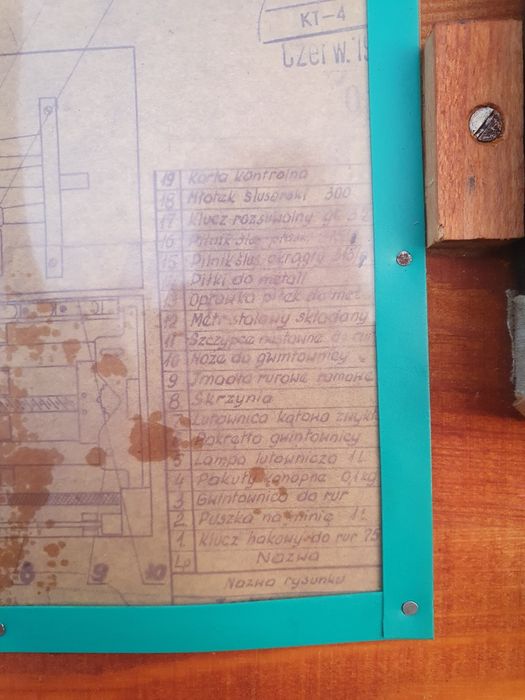 KT-4
Czerw. 19
19 Karta kontrolna
18 Młotek ślusarski 300
17 Klucz rozsuwalny
16 Pilnik ślus. płaski
15 Pilnik ślus. okrągły 315
Piłki do metali
13 Oprawka piłek do met
12 Metr stalowy składany
11 Szczypce nastawne do rur
10 Noże do gwintownicy
9 Imadło rurowe ramowe
8 Skrzynia
7 Lutownica kątowa zwykł
6 Pokrętło gwintownicy
5 Lampa lutownicza 1 L
4 Pakuły konopne 0,1kg
3 Gwintownica do rur
2 Puszka na minię 1 L
1 Klucz hakowy do rur 75
Lp Nazwa
Nazwa rysunku
8 9 10